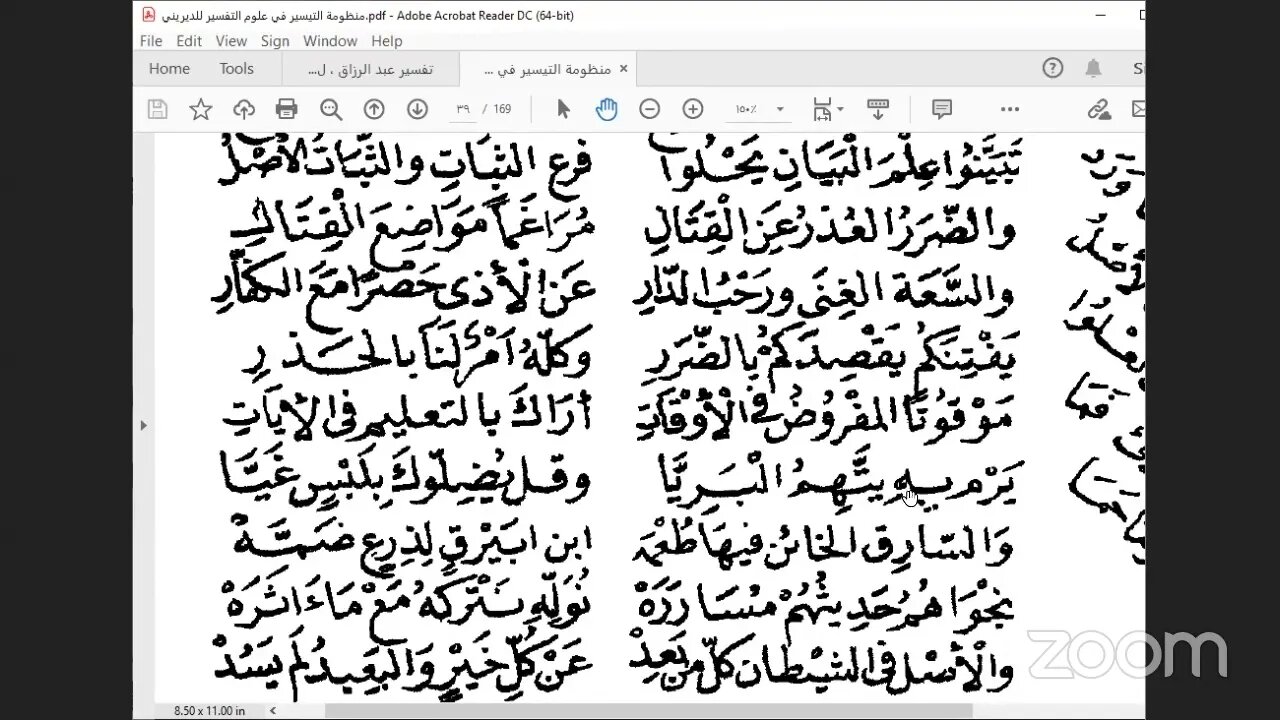 منظومة التيسير في علوم التفسير للديريني.pdf - Adobe Acrobat Reader DC (64-bit)
File Edit View Sign Window Help
Home Tools تفسير عبد الرزاق ، ل... منظومة التيسير في ... ×
٣٩ / 169 ١٥٠٪
تَبَيَّنُوا عِلْمَ الْبَيَانِ يَحْلُوا فرع الثبَاتِ والثَّبَاتُ الأَصْلُ
والضَّرَرُ العُذرُ عَنِ الْقِتَالِ مُرَاغَماً مَوَاضِعَ الْقِتَالِ
والسَّعَة الغِنَى ورَحْبُ الدَّارِ عَنِ الْأذى حَصْرًا مَعَ الكفَّارِ
يَفْتِنَكُمْ يَقْصِدَكمْ بِالضَّرَرِ وَكلّهُ امْرٌ لَنَا بالحَذرِ
مَوْقُوتًا المفْرُوضُ فِي الْأَوْقَاتِ أرَاكَ بالتعليم فى الأيَاتِ
يَرْمِ بِهِ يَتَّهِمُ الْبَرِيَّا وقل يُضِلّوكَ بِلَبْسٍ غَيَّا
وَالسّارِق الخائن فيهَا طُعْمَه ابن ابَيْرقٍ لِذِرعٍ ضَمَّهْ
نجْوَاهُمُ حَدِيثُهُمْ مُسَارَرَهْ نُوَلِّهِ نَتْرُكهُ مَعْ مَا آثَرَهْ
وَالْأصْل فى الشيْطان كلّ من بَعِدْ عَنْ كُلِّ خَيْرٍ وَالبَعِيدُ لَم يَسُدْ
8.50 x 11.00 in
zoom